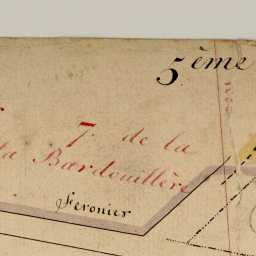 5ème
7. de la
la Bardouillère
Feronier